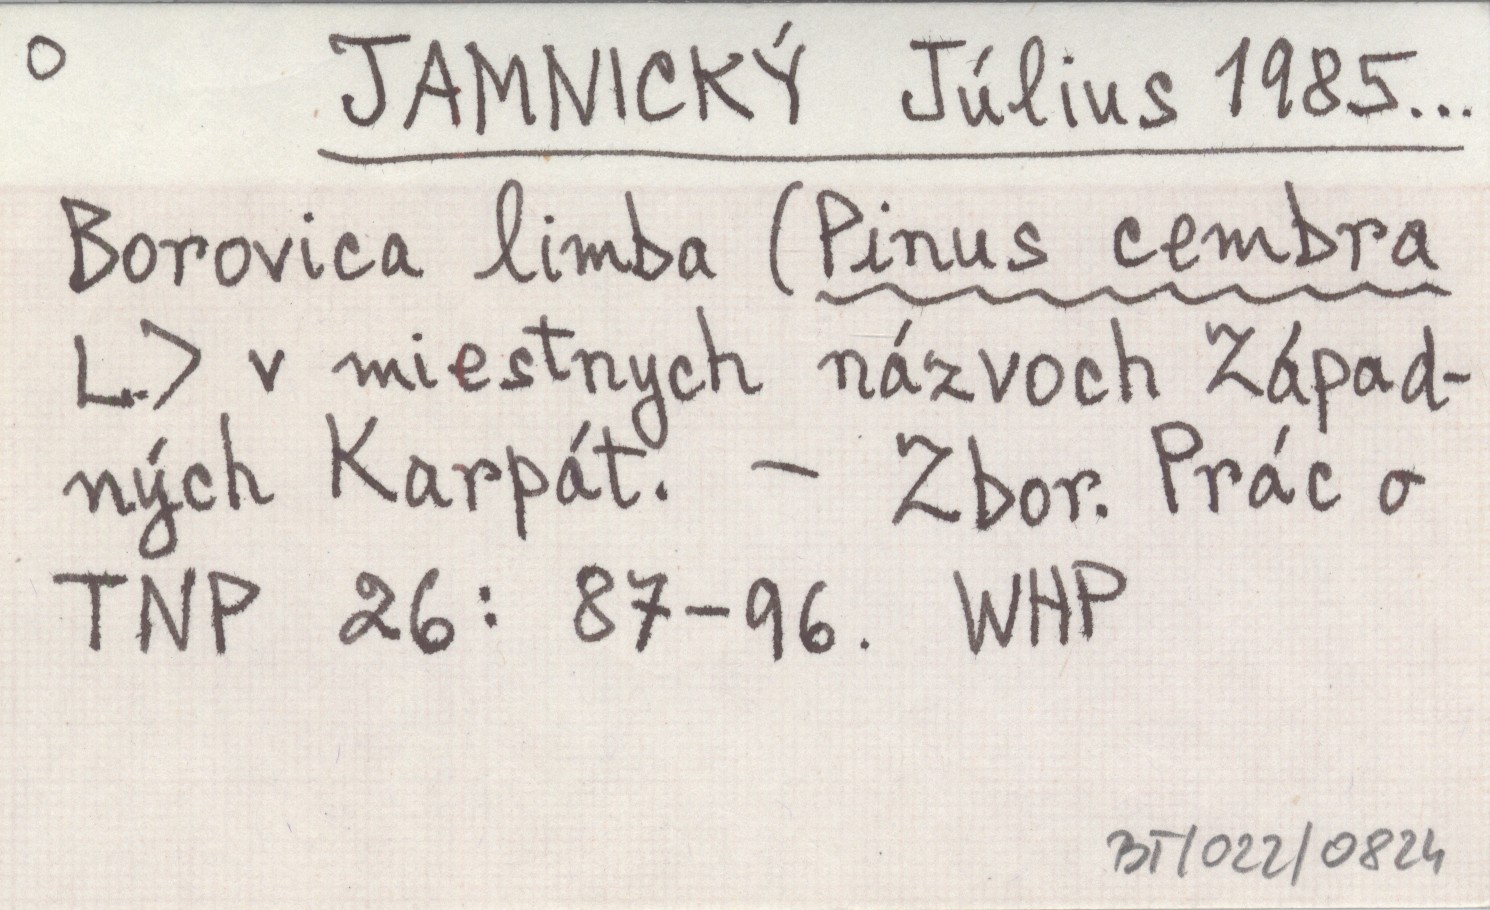 O JAMNICKÝ Július 1985...
Borovica limba (Pinus cembra
L.) v miestnych názvoch Západ-
ných Karpát. – Zbor. Prác o
TNP 26: 87–96. WHP
BT/022/0824